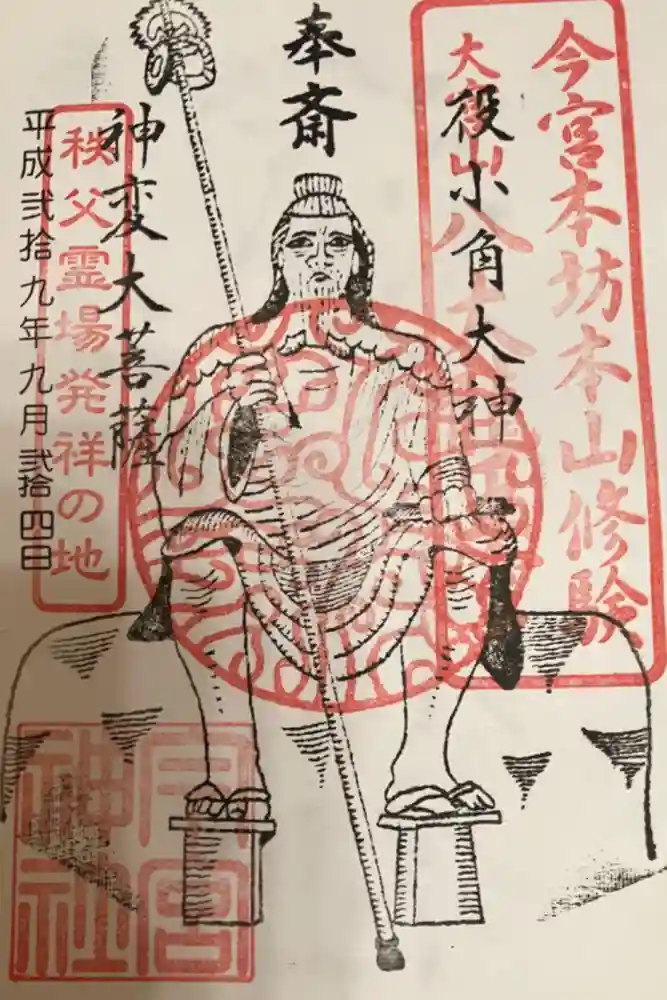 今宮本坊本山修験
大宮山八大
役小角大神
奉斎
神変大菩薩
秩父霊場発祥の地
平成弐拾九年九月弐拾四日
今宮
神社